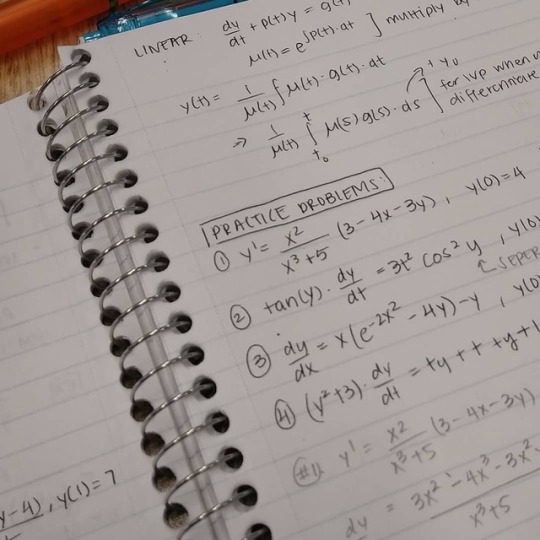 LINEAR: dy/dt + p(t)y = g(t)
μ(t) = e^∫p(t)·dt ] multiply by
y(t) = 1/μ(t) ∫ μ(t)·g(t)·dt
⇒ 1/μ(t) ∫_{t₀}^{t} μ(s)g(s)·ds + y₀ ] for IVP when
differentiate
PRACTICE PROBLEMS:
① y' = x²/(x³+5) (3-4x-3y), y(0)=4
② tan(y)·dy/dt = 3t² cos²y, y(0)
③ dy/dx = x(e^{-2x²} - 4y) - y, y(0)
④ (y²+3)·dy/dt = ty + t + y + 1
#1. y' = x²/(x³+5) (3-4x-3y)
dy = (3x² - 4x³ - 3x²)/(x³+5)
y-4), y(1)=7